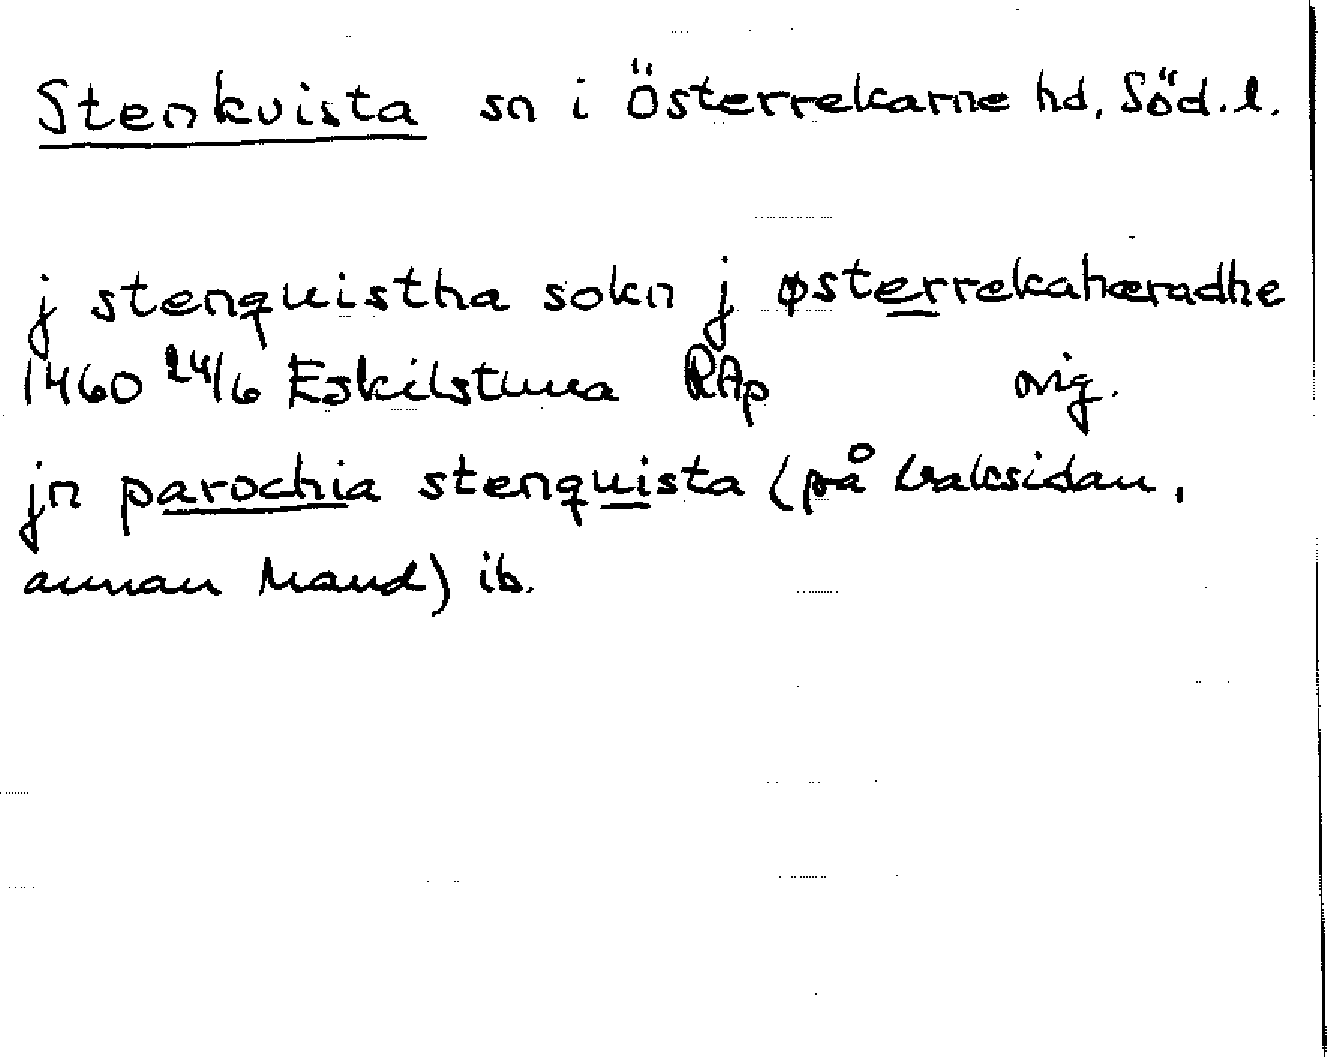 Stenkvista sn i Österrekarne hd, Söd.l.
j stenquistha sokn j østerrekahæradhe
1460 24/6 Eskilstuna RAp orig.
jn parochia stenquista (på baksidan,
annan hand) ib.